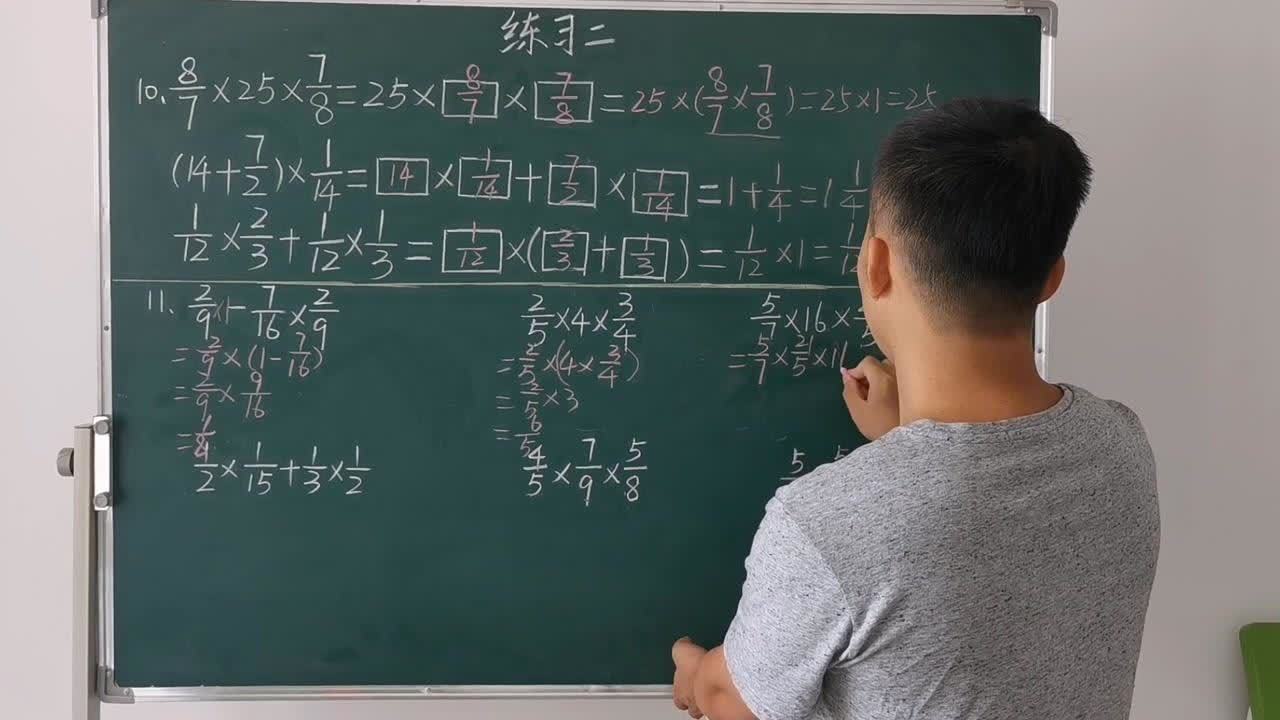 练习二
10. 8/7 × 25 × 7/8 = 25 × 8/7 × 7/8 = 25 × (8/7 × 7/8) = 25 × 1 = 25
(14 + 7/2) × 1/14 = 14 × 1/14 + 7/2 × 1/14 = 1 + 1/4 = 1 1/4
1/12 × 2/3 + 1/12 × 1/3 = 1/12 × (2/3 + 1/3) = 1/12 × 1 = 1/12
11. 2/9 ×1 - 7/16 × 2/9
= 2/9 × (1 - 7/16)
= 2/9 × 9/16
= 1/8
2/5 × 4 × 3/4
= 2/5 × (4 × 3/4)
= 2/5 × 3
= 6/5
5/7 × 16 ×
= 5/7 × 21/5 × 1
1/2 × 1/15 + 1/3 × 1/2
4/5 × 7/9 × 5/8
5